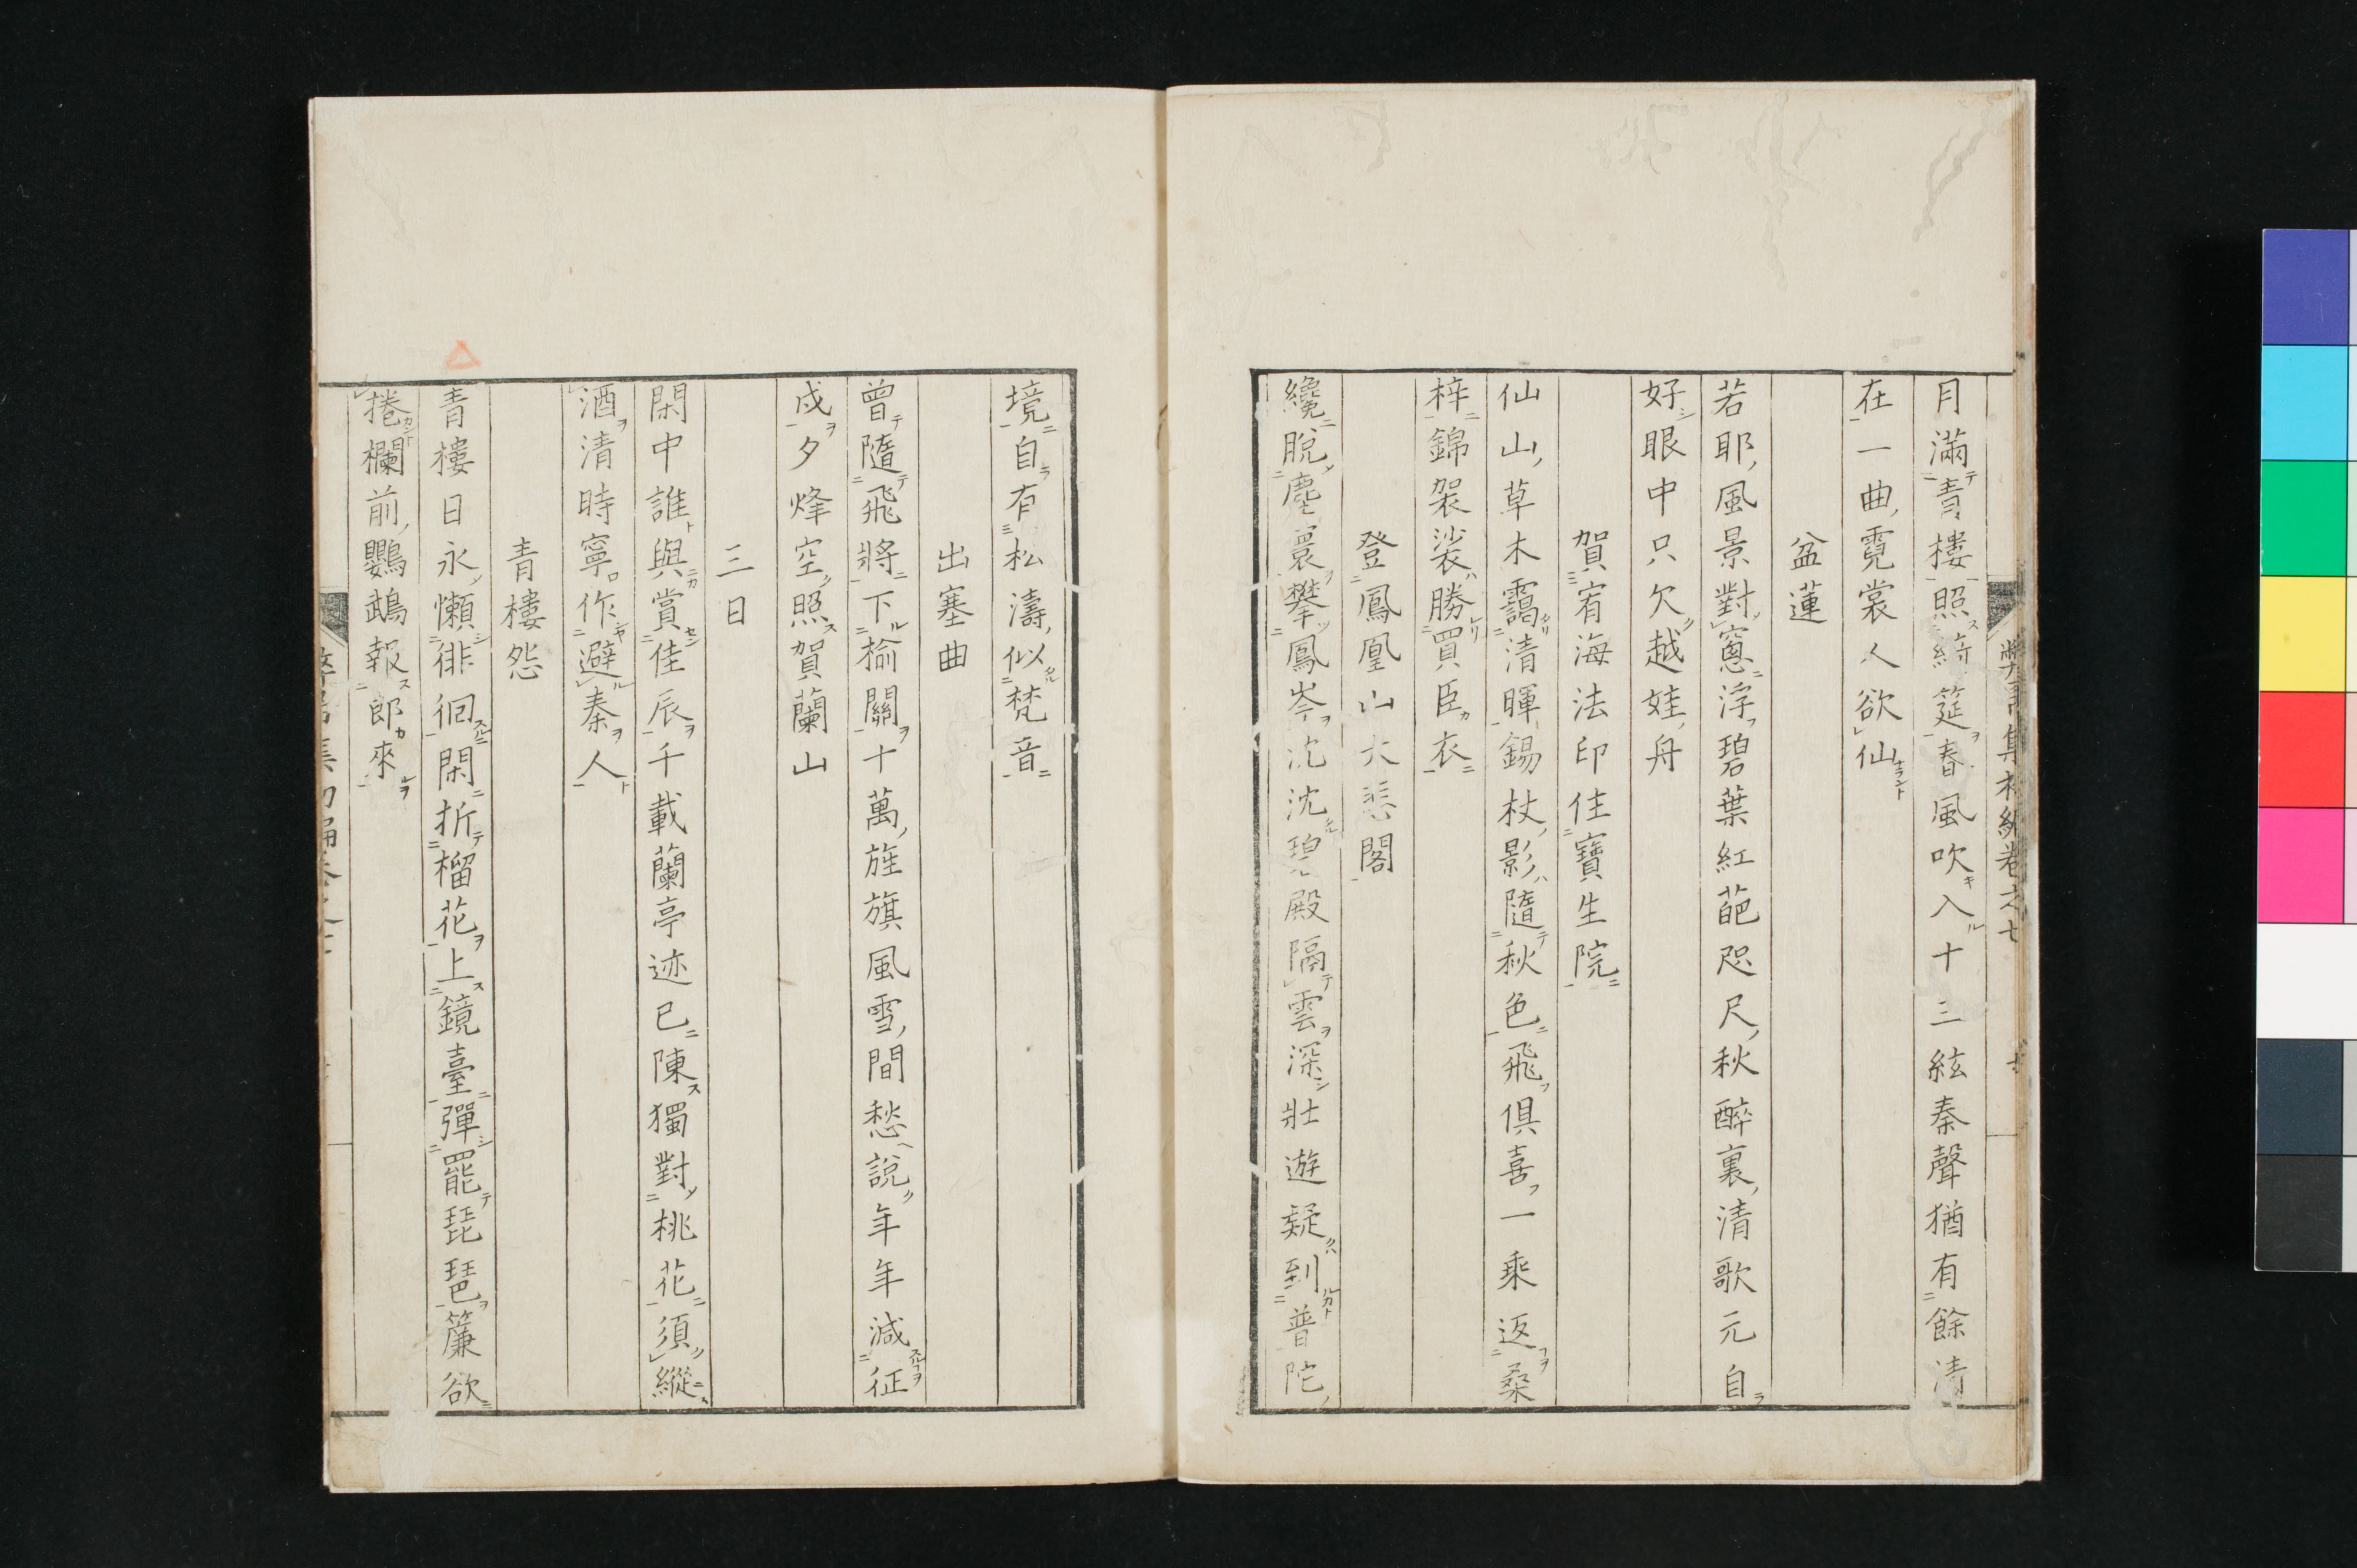 月滿青樓照綺筵春風吹入十三絃秦聲猶有餘清
在一曲霓裳人欲仙
盆蓮
若耶風景對窓浮碧葉紅葩咫尺秋醉裏清歌元自
好眼中只欠越娃舟
賀宥海法印住寶生院
仙山草木靄清暉錫杖影隨秋色飛俱喜一乘返桑
梓錦袈裟勝買臣衣
登鳳凰山大悲閣
纔脫塵寰攀鳳岑沈沈碧殿隔雲深壯遊疑到普陀
境自有松濤似梵音
出塞曲
曾隨飛將下榆關十萬旌旗風雪間愁說年年減征
戍夕烽空照賀蘭山
三日
閑中誰與賞佳辰千載蘭亭迹已陳獨對桃花須縱
酒清時寧作避秦人
青樓怨
青樓日永懶徘徊閑折榴花上鏡臺彈罷琵琶簾欲
捲欄前鸚鵡報郎來